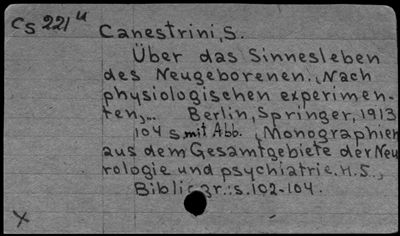 Cs 221 u Canestrini, S.
Über das Sinnesleben
des Neugeborenen., Nach
physiologischen experimen-
ten,... Berlin, Springer, 1913
104 s. mit Abb. , Monographien
aus dem Gesamtgebiete der Neu
rologie und psychiatrie. H. 5.,
Bibliogr.: s. 102-104.
X